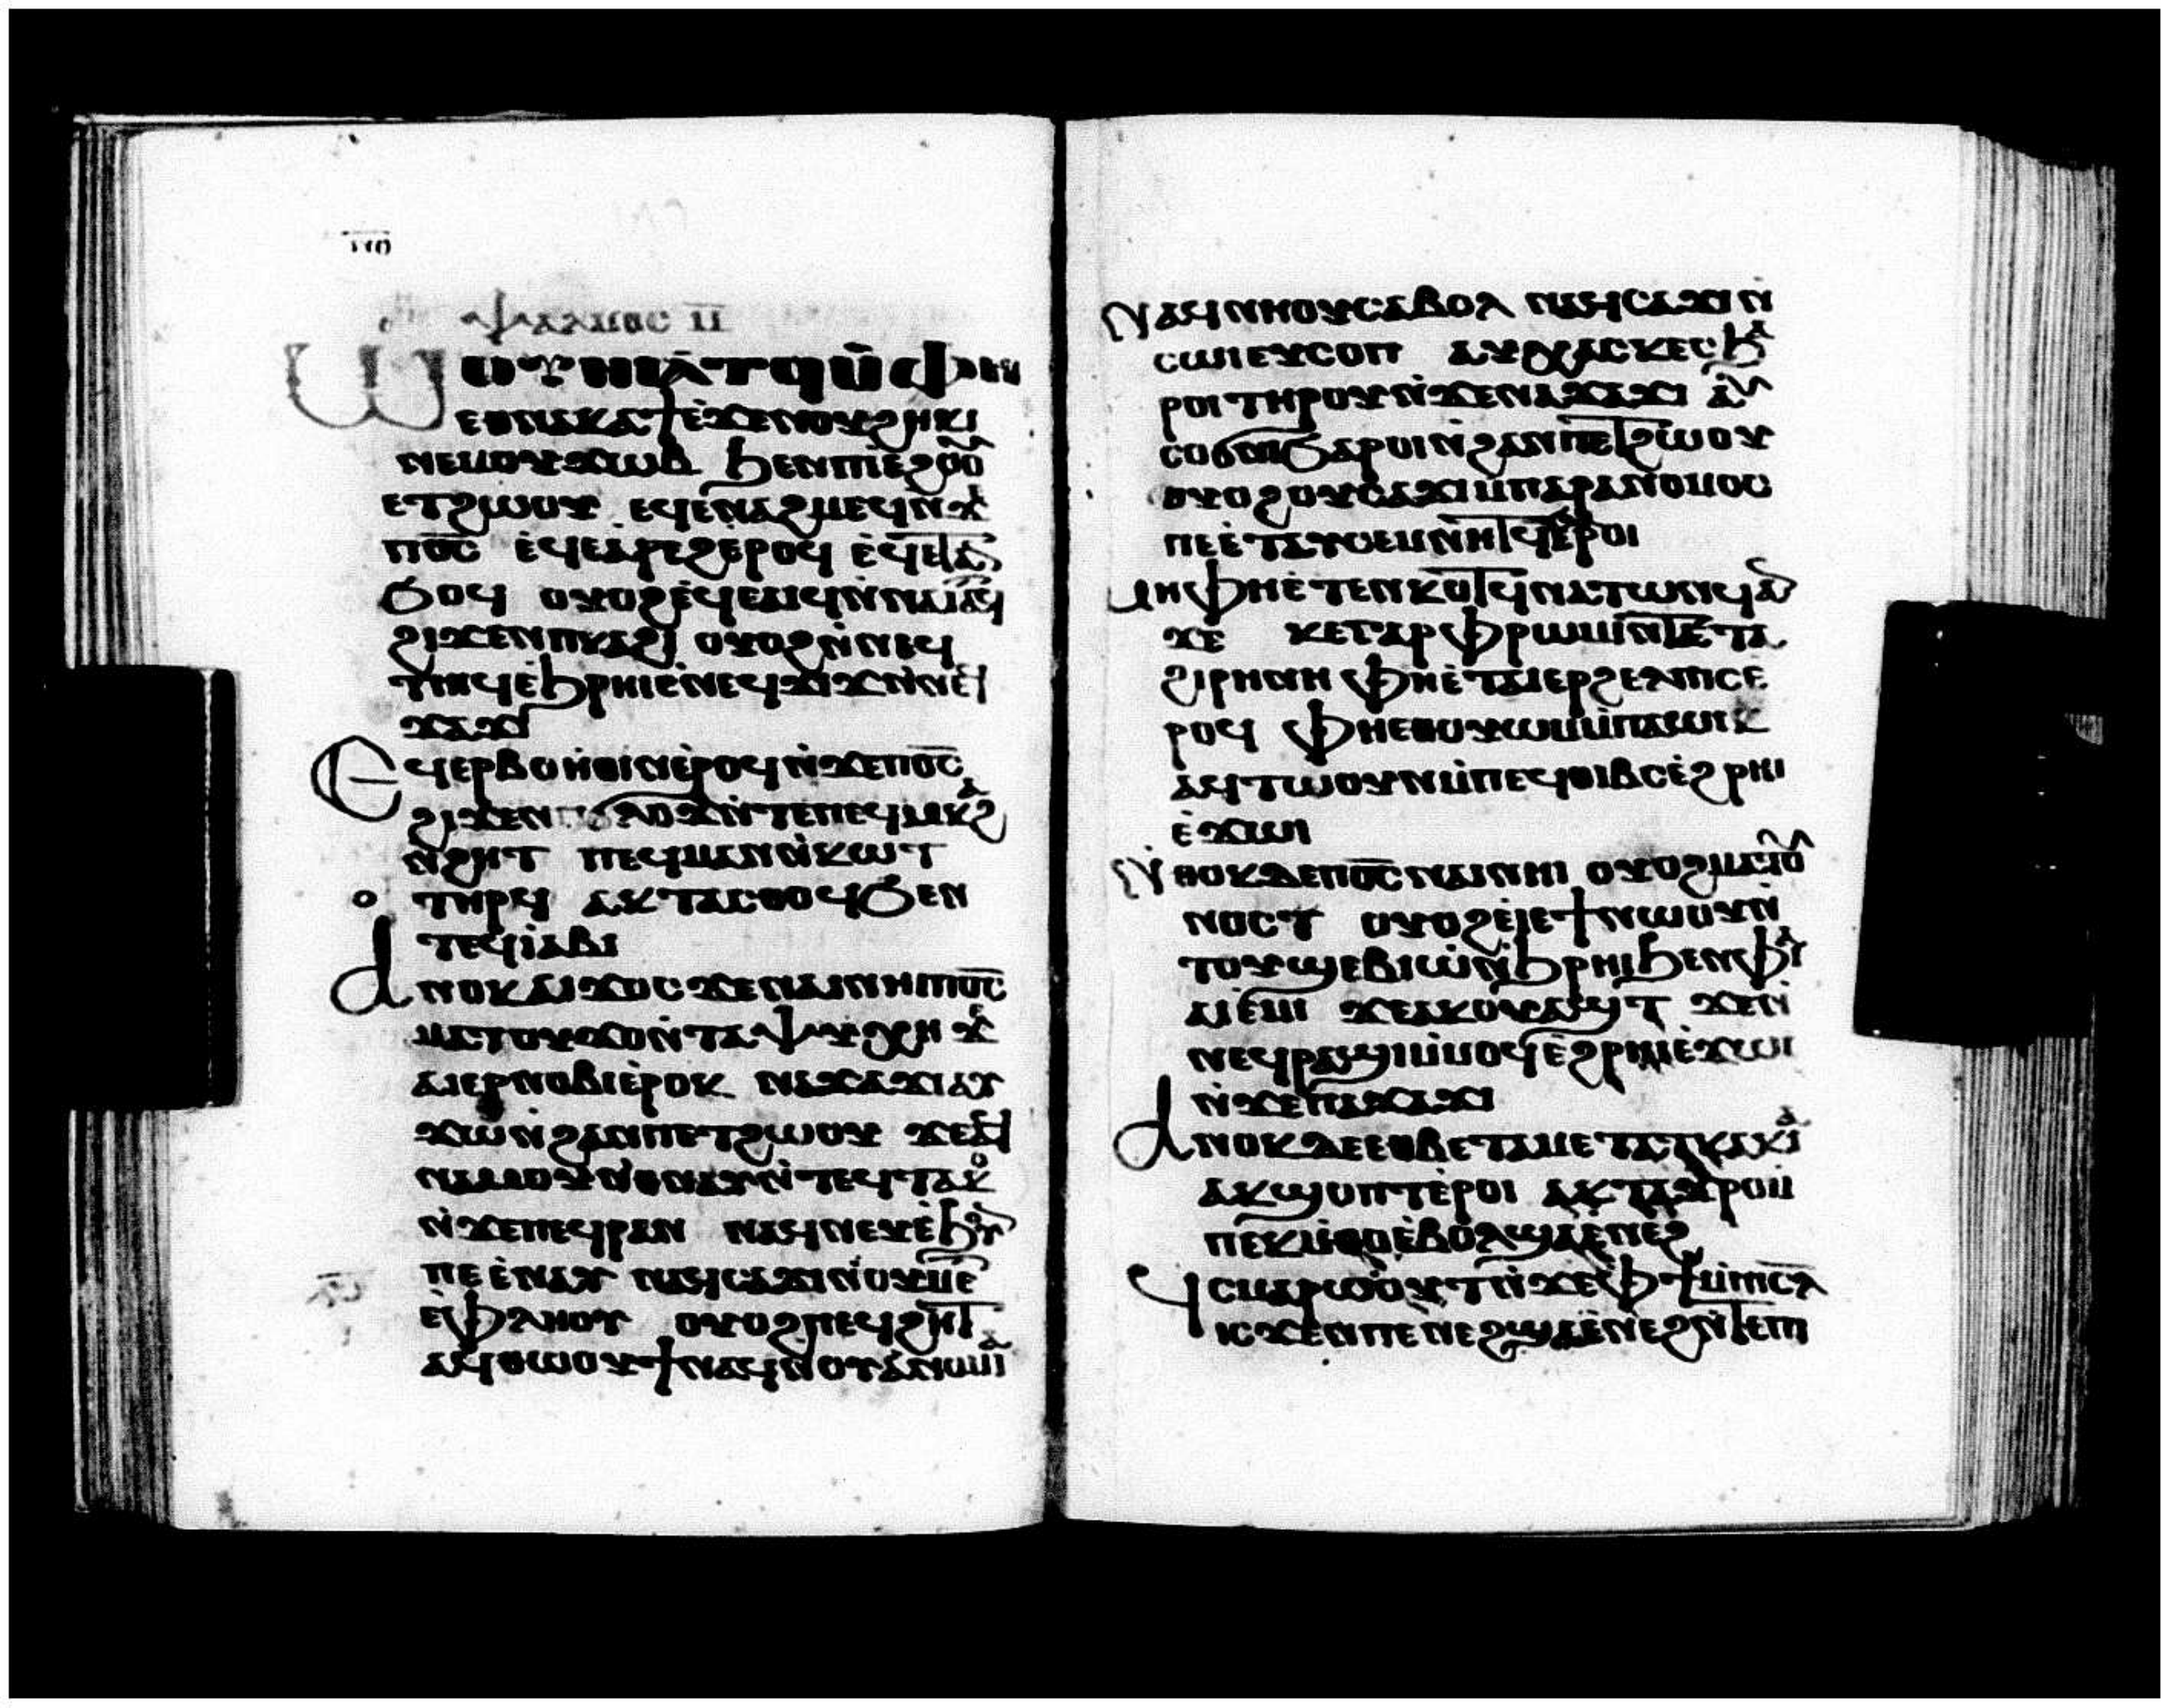 ⲯⲁⲗⲙⲟⲥ ⲙ̅
ⲱⲟⲩⲛⲓⲁⲧϥ ⲙ̀ⲫⲏ
ⲉⲑⲛⲁⲕⲁϯ ⲉ̀ϫⲉⲛⲟⲩϩⲏⲕⲓ
ⲛⲉⲙⲟⲩϫⲱⲃ ϧⲉⲛⲡⲓⲉ̀ϩⲟⲟⲩ
ⲉⲧϩⲱⲟⲩ ⲉϥⲉⲛⲁϩⲙⲉϥ ⲛ̀ϫⲉ
ⲡⲟ̅ⲥ̅ ⲉ̀ϥⲉⲁⲣⲉϩ ⲉⲣⲟϥ ⲉ̀ϥⲉⲧⲁⲛ
ϧⲟϥ ⲟⲩⲟϩ ⲉ̀ϥⲉⲁⲓϥ ⲛ̀ⲛⲁⲓⲁⲧϥ
ϩⲓϫⲉⲛⲡⲕⲁϩⲓ ⲟⲩⲟϩ ⲛ̀ⲛⲉϥ
ⲧⲏⲓϥ ⲉ̀ϧⲣⲏⲓ ⲉ̀ⲛⲉⲛϫⲓϫ ⲛ̀ⲛⲉϥ
ϫⲁϫⲓ
ⲉϥⲉⲣⲃⲟⲏ̀ⲑⲓⲛ ⲉ̀ⲣⲟϥ ⲛ̀ϫⲉⲡⲟ̅ⲥ̅
ϩⲓϫⲉⲛ ⲡϭⲗⲟϫ ⲛ̀ⲧⲉⲡⲉϥⲙⲕⲁϩ
ⲛ̀ϩⲏⲧ ⲡⲉϥⲙⲁⲛⲛ̀ⲕⲟⲧ
ⲧⲏⲣϥ ⲁⲕⲧⲁⲥⲑⲟϥ ϧⲉⲛ
ⲧⲉϥⲓⲁⲃⲓ
ⲁⲛⲟⲕ ⲁⲓϫⲟⲥ ϫⲉⲛⲁⲓⲛⲏⲓ ⲡⲟ̅ⲥ̅
ⲙⲁⲧⲟⲩϫⲟ ⲛ̀ⲧⲁⲯⲩⲭⲏ ϫⲉ
ⲁⲓⲉⲣⲛⲟⲃⲓ ⲉ̀ⲣⲟⲕ ⲛⲁϫⲁϫⲓ ⲁⲩ
ϫⲱ ⲛ̀ϩⲁⲛⲡⲉⲧϩⲱⲟⲩ ϫⲉⲁϥ
ⲛⲁⲙⲟⲩ ⲛ̀ⲑⲛⲁⲩ ⲛ̀ⲧⲉϥⲧⲁⲕⲟ
ⲛ̀ϫⲉⲡⲉϥⲣⲁⲛ ⲛⲁϥⲛⲏⲟⲩ ⲉ̀ϧⲟⲩⲛ
ⲡⲉ ⲉ̀ⲛⲁⲩ ⲛⲁϥⲥⲁϫⲓ ⲛ̀ⲟⲩⲙⲉⲧ
ⲉ̀ⲫⲗⲏⲟⲩ ⲟⲩⲟϩ ⲡⲉϥϩⲏⲧ
ⲁϥⲑⲱⲟⲩϯ ⲛⲁϥ ⲛ̀ⲟⲩⲁⲛⲟⲙⲓⲁ
ⲛⲁϥⲛⲏⲟⲩ ⲥⲁⲃⲟⲗ ⲛⲁϥⲥⲁϫⲓ ⲛ̀
ⲥⲱⲓ ⲉⲩⲥⲟⲡ ⲁⲩⲭⲁⲥⲕⲉⲥ ϧⲁ
ⲣⲟⲓ ⲧⲏⲣⲟⲩ ⲛ̀ϫⲉⲛⲁϫⲁϫⲓ ⲁⲩ
ⲥⲟϭⲛⲓ ϧⲁⲣⲟⲓ ⲛ̀ϩⲁⲛⲡⲉⲧϩⲱⲟⲩ
ⲟⲩⲟϩ ⲟⲩⲥⲁϫⲓ ⲙ̀ⲡⲁⲣⲁⲛⲟⲙⲟⲥ
ⲡⲉ ⲉ̀ⲧⲁⲩⲥⲉⲙⲛⲏⲧϥ ⲉ̀ⲣⲟⲓ
ⲙⲏ ⲫⲏⲉ̀ⲧⲉⲛⲕⲟⲧ ϥⲛⲁⲧⲱⲛϥ ⲁⲛ
ϫⲉ ⲕⲉⲅⲁⲣ ⲫⲣⲱⲙⲓ ⲛ̀ⲧⲉⲧⲁ
ϩⲓⲣⲏⲛⲏ ⲫⲏⲉ̀ⲧⲁⲓⲉⲣϩⲉⲗⲡⲓⲥ ⲉ̀
ⲣⲟϥ ⲫⲏⲉⲑⲟⲩⲱⲙ ⲙ̀ⲡⲁⲱⲓⲕ
ⲁϥⲧⲱⲟⲩⲛ ⲙ̀ⲡⲉϥⲑⲓⲃⲥ ⲉ̀ϩⲣⲏⲓ
ⲉ̀ϫⲱⲓ
ⲛ̀ⲑⲟⲕ ⲇⲉ ⲡⲟ̅ⲥ̅ ⲛⲁⲓ ⲛⲏⲓ ⲟⲩⲟϩ ⲙⲁⲧⲟⲩ
ⲛⲟⲥⲧ ⲟⲩⲟϩ ⲉⲓⲉ̀ϯ ⲛⲱⲟⲩ ⲛ̀
ⲧⲟⲩϣⲉⲃⲓⲱ ⲛ̀ϧⲣⲏⲓ ϧⲉⲛⲫⲁⲓ
ⲁⲓⲉ̀ⲙⲓ ϫⲉⲁⲕⲟⲩⲁϣⲧ ϫⲉⲛ̀
ⲛⲉϥⲣⲁϣⲓ ⲙ̀ⲙⲟϥ ⲉ̀ϩⲣⲏⲓ ⲉ̀ϫⲱⲓ
ⲛ̀ϫⲉⲡⲁϫⲁϫⲓ
ⲁⲛⲟⲕ ⲇⲉ ⲉⲑⲃⲉⲧⲁⲙⲉⲧⲁⲧⲕⲁⲕⲓⲁ
ⲁⲕϣⲟⲡⲧ ⲉ̀ⲣⲟⲓ ⲁⲕⲧⲁϫⲣⲟⲓ ⲙ̀
ⲡⲉⲕⲙ̀ⲑⲟ ⲉ̀ⲃⲟⲗ ϣⲁⲉ̀ⲛⲉϩ
ϥⲥⲙⲁⲣⲱⲟⲩⲧ ⲛ̀ϫⲉⲫϯ ⲙ̀ⲡⲓⲥ̅ⲗ̅
ⲓⲥϫⲉⲛ ⲡⲉⲛⲉϩ ϣⲁⲉ̀ⲛⲉϩ ⲛ̀ⲧⲉⲡⲓ